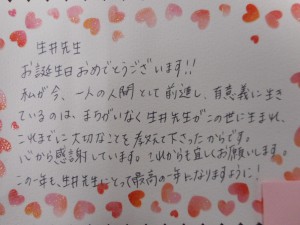 生井先生
お誕生日おめでとうございます!!
私が今、一人の人間として前進し、有意義に生き
ているのは、まちがいなく生井先生がこの世に生まれ、
これまでに大切なことを教えて下さったからです。
心から感謝しています。これからも宜しくお願いします。
この一年も、生井先生にとって最高の一年になりますように!